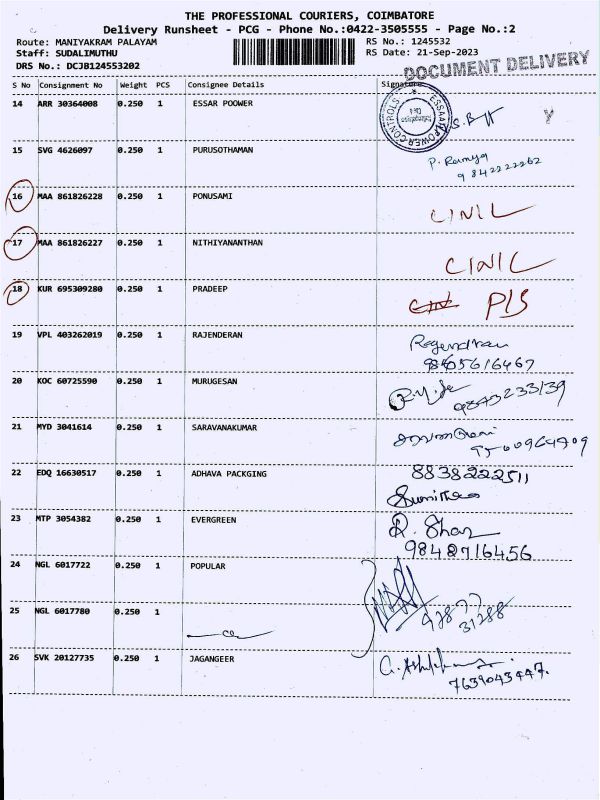 THE PROFESSIONAL COURIERS, COIMBATORE
Delivery Runsheet - PCG - Phone No.:0422-3505555 - Page No.:2
Route: MANIYAKRAM PALAYAM RS No.: 1245532
Staff: SUDALIMUTHU RS Date: 21-Sep-2023
DRS No.: DCJB124553202
DOCUMENT DELIVERY
S No Consignment No Weight PCS Consignee Details Signature
14 ARR 30364008 0.250 1 ESSAR POOWER
15 SVG 4626097 0.250 1 PURUSOTHAMAN P. Ramya
9842222262
16 MAA 861826228 0.250 1 PONUSAMI CINIL
17 MAA 861826227 0.250 1 NITHIYANANTHAN CINIL
18 KUR 695309280 0.250 1 PRADEEP P/S
19 VPL 403262019 0.250 1 RAJENDERAN Rogendran
20 KOC 60725590 0.250 1 MURUGESAN 9843233139
21 MYD 3041614 0.250 1 SARAVANAKUMAR
22 EDQ 16630517 0.250 1 ADHAVA PACKGING 8838222511
23 MTP 3054382 0.250 1 EVERGREEN
9842716456
24 NGL 6017722 0.250 1 POPULAR
25 NGL 6017780 0.250 1
26 SVK 20127735 0.250 1 JAGANGEER
7639043447.